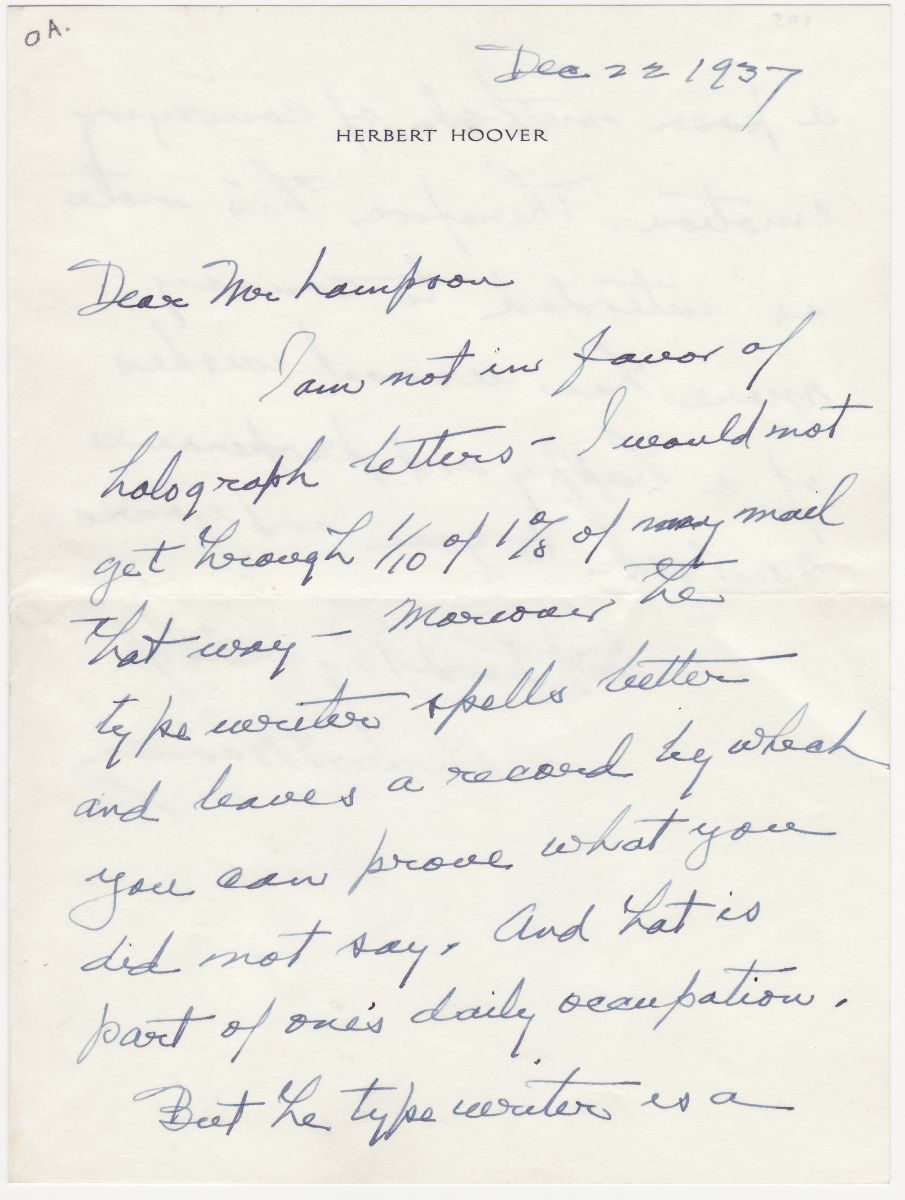 OA.
Dec 22 1937
HERBERT HOOVER
Dear Mr Lampson
I am not in favor of
holograph letters – I would not
get through 1/10 of 1% of my mail
that way – Moreover the
type writer spells better
and leaves a record by which
you can prove what you
did not say. And that is
part of one's daily occupation.
But the type writer is a